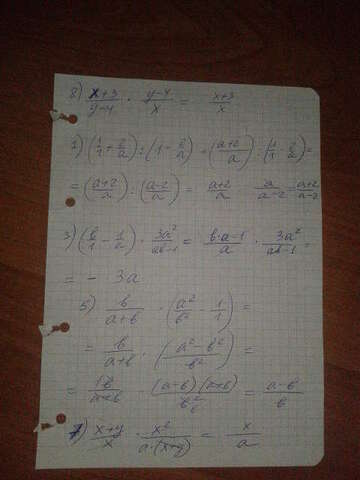 8) x+3/y-4 · y-4/x = x+3/x
1) (1/1 + 2/a) : (1 - 2/a) = (a+2/a) : (1/1 - 2/a) =
= (a+2/a) : (a-2/a) = a+2/a · a/a-2 = a+2/a-2
3) (b/1 - 1/a) · 3a²/ab-1 = b·a-1/a · 3a²/ab-1 =
= - 3a
5) b/a+b · (a²/b² - 1/1) =
= b/a+b · (a²-b²/b²) =
= 1b/a+b · (a-b)(a+b)/b² b = a-b/b
7) x+y/x · x²/a·(x+y) = x/a